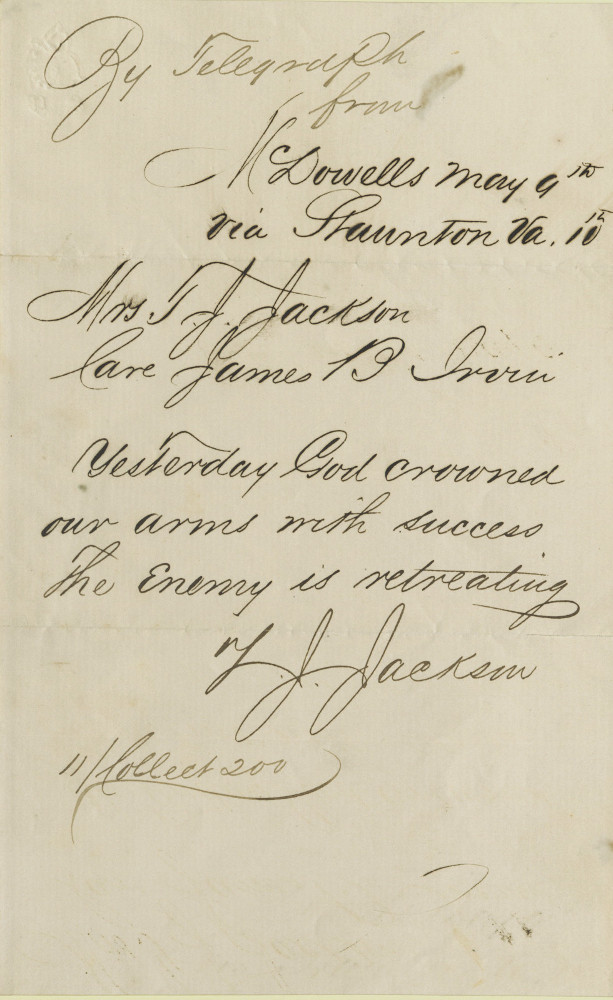 By Telegraph
from
McDowells May 9th
via Staunton Va. 10th
Mrs T. J. Jackson
Care James B Irvin
Yesterday God crowned
our arms with success
The Enemy is retreating
T. J. Jackson
11/Collect 200